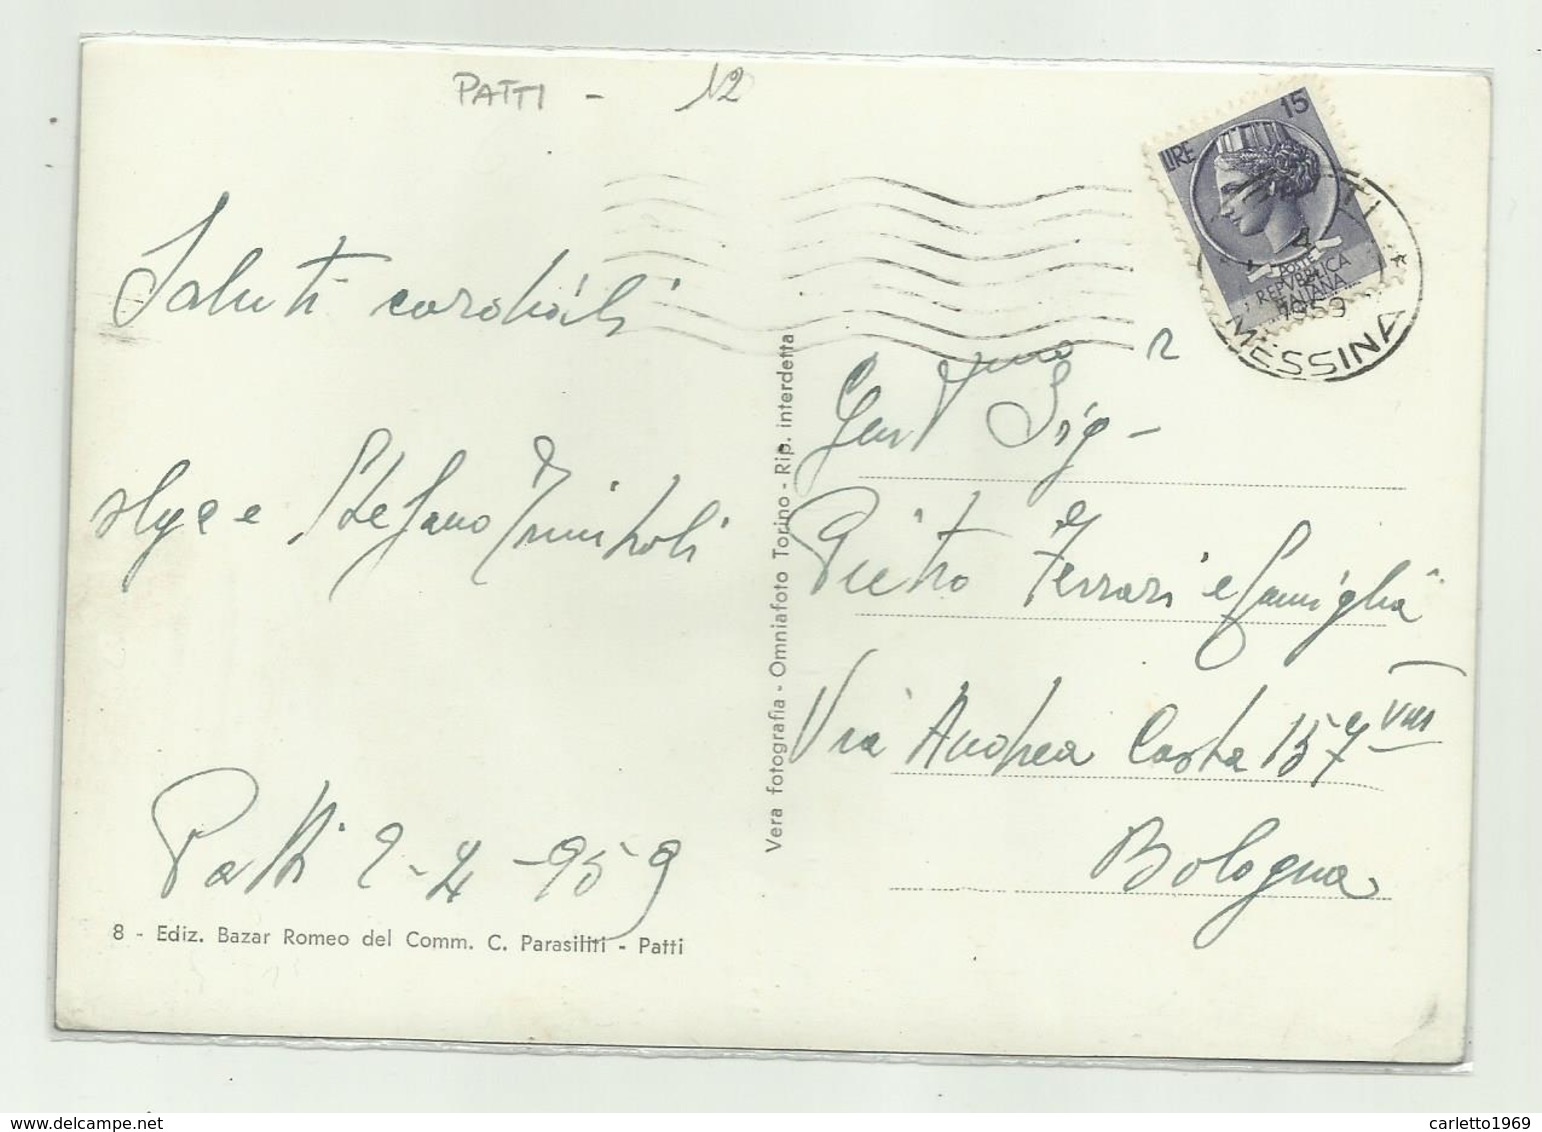 PATTI - 12
LIRE 15
POSTE
REPVBBLICA
ITALIANA
4
1959
MESSINA
Saluti cordiali
Olga e Stefano
Patti 2-4-959
8 - Ediz. Bazar Romeo del Comm. C. Parasiliti - Patti
Vera fotografia - Omniafoto Torino - Rip. interdetta
Gent Sig
Pietro Ferrari e famiglia
Via Andrea Costa 157 VIII
Bologna
carletto1969